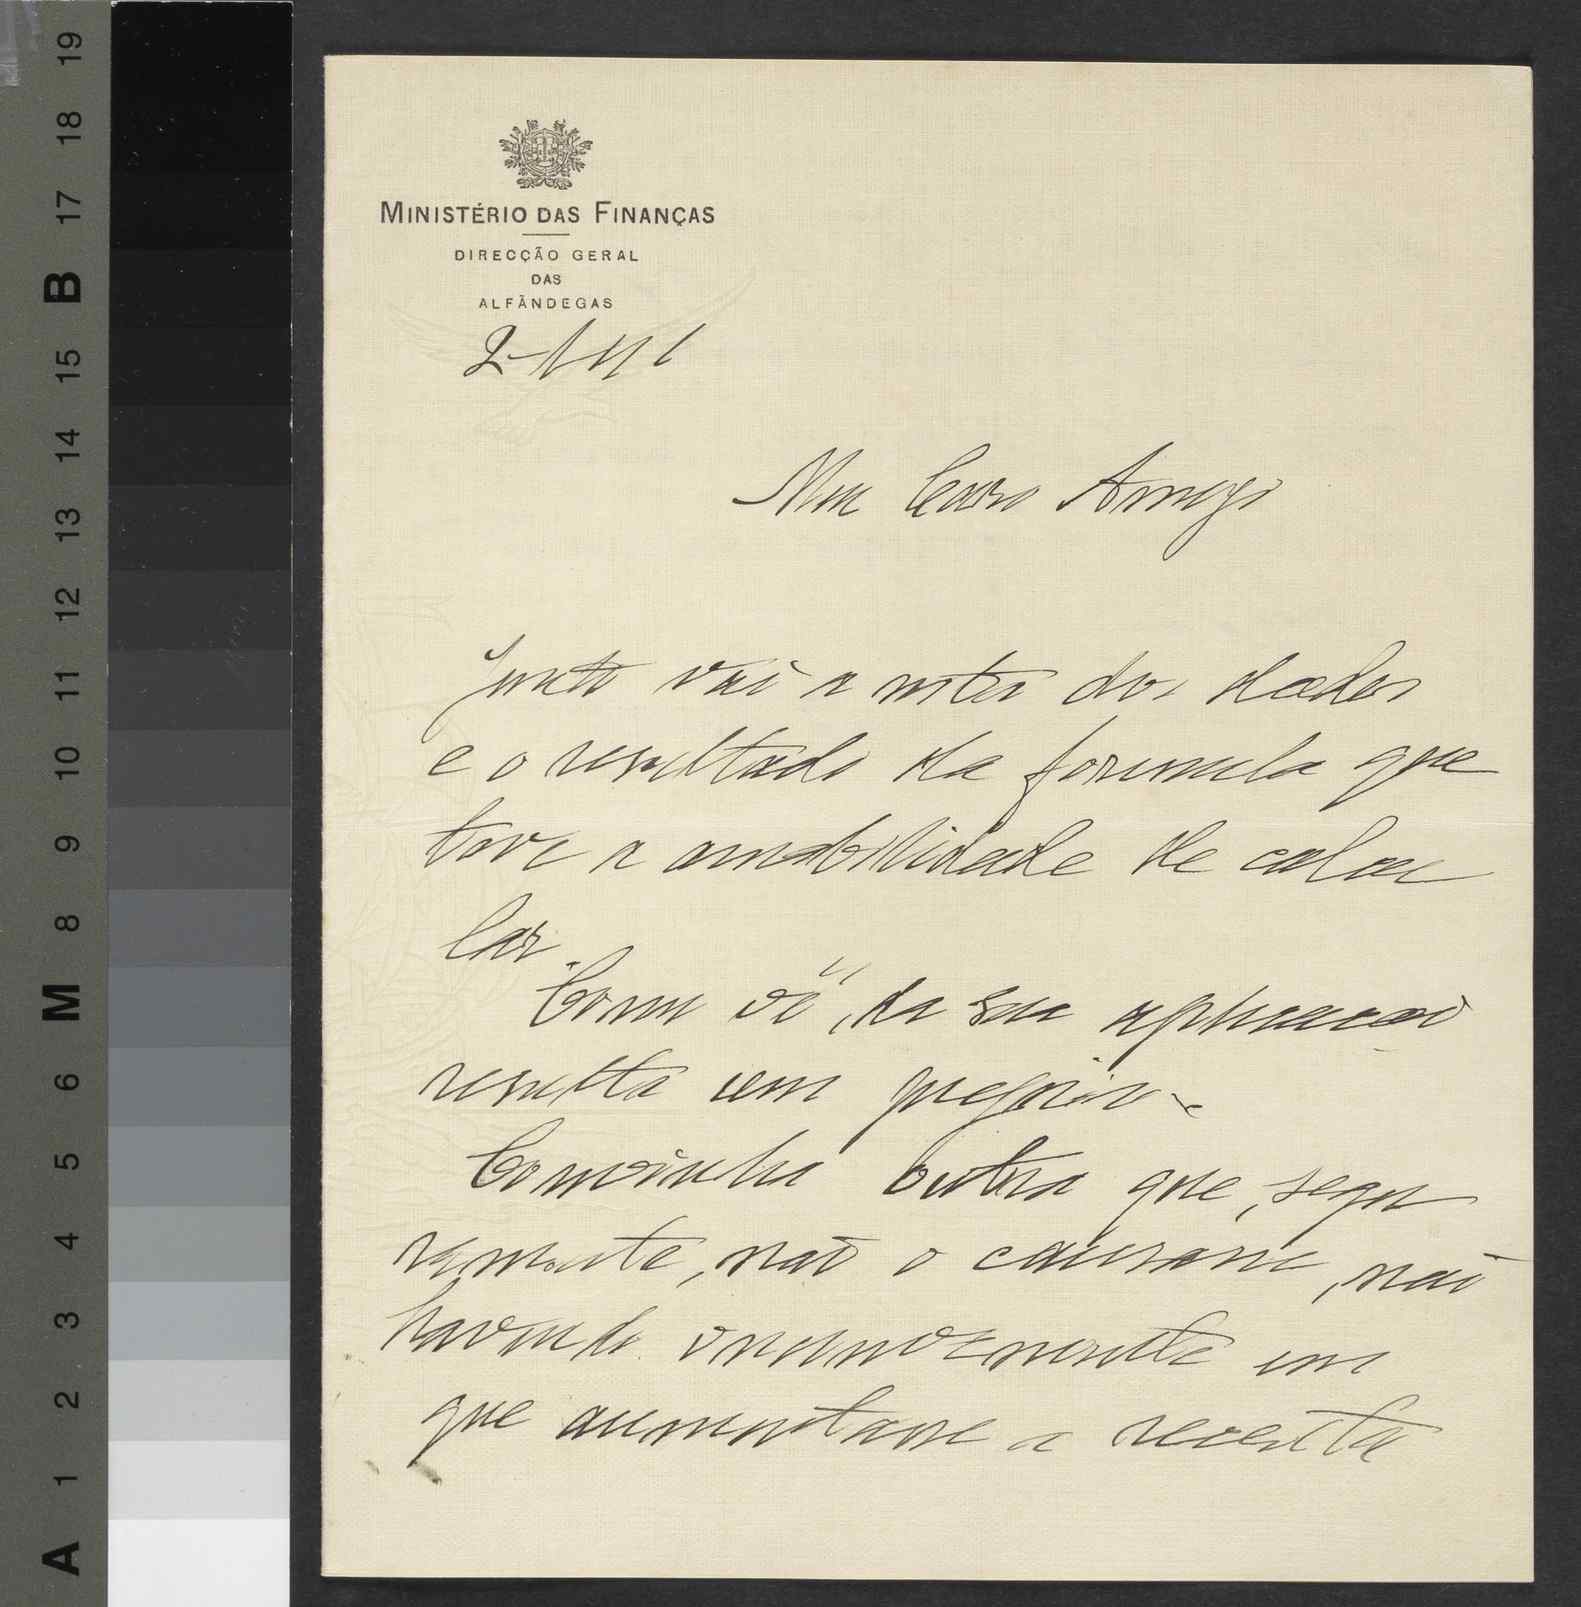 MINISTÉRIO DAS FINANÇAS
DIRECÇÃO GERAL
DAS
ALFÂNDEGAS
Meu Caro Amigo
Junto vai a nota dos dados
e o resultado da formula que
teve a amabilidade de calcu
lar.
Como vê, da sua aplicação
resulta um prejuizo.
Convinha outra que, segu
ramente, não o causasse, não
havendo inconveniente em
que aumentasse a receita
A 1 2 3 4 5 6 M 8 9 10 11 12 13 14 15 B 17 18 19